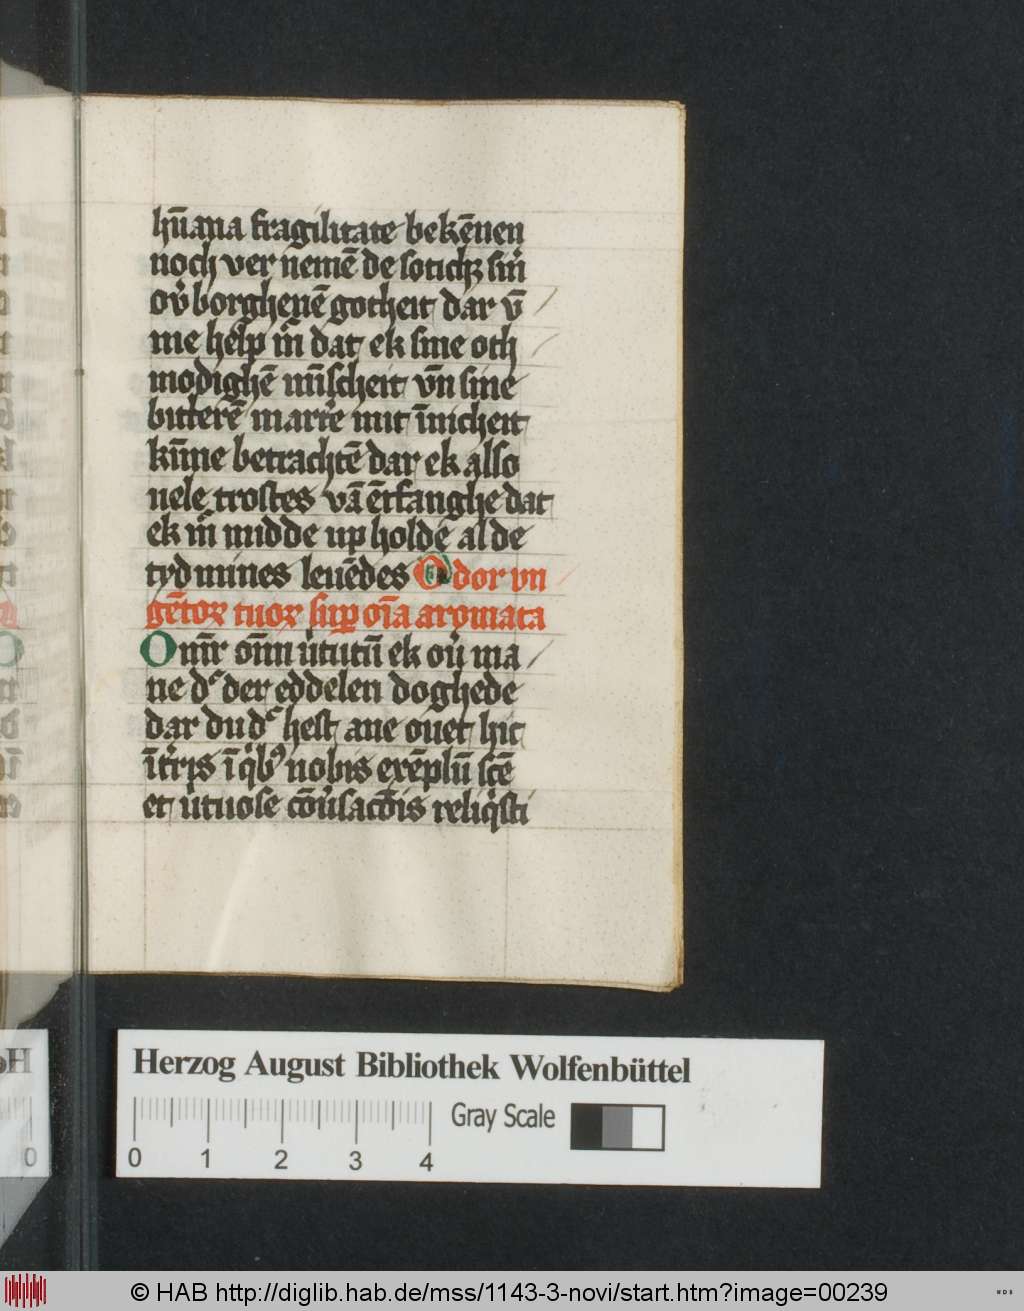 hūana fragilitate bekēnen
noch ver nemē de soticħ sin̄
ov̓borghenē gotheit dar v̄
me help m̄ dat ek sine oth
modighē mīscheit vn̄ sine
bitterē mart̓e mit īnicheit
kūne betrachtē dar ek also
uele trostes vā ētfanghe dat
ek m̄ midde up holde al de
tyd mines leuēdes Odor vn
gētoꝝ tuoꝝ suꝑ oīa aromata
O mīr om̄ v̓tutū ek ov̓ ma
ne dͨ der eddelen doghede
dar du dͨ hest ane ouet hic
īt̓ris ī qͥbꝰ nobis exēplū sc̄e
et v̓tuose cōv̓sacōis reliqͥsti
Herzog August Bibliothek Wolfenbüttel
0 1 2 3 4
Gray Scale
© HAB http://diglib.hab.de/mss/1143-3-novi/start.htm?image=00239